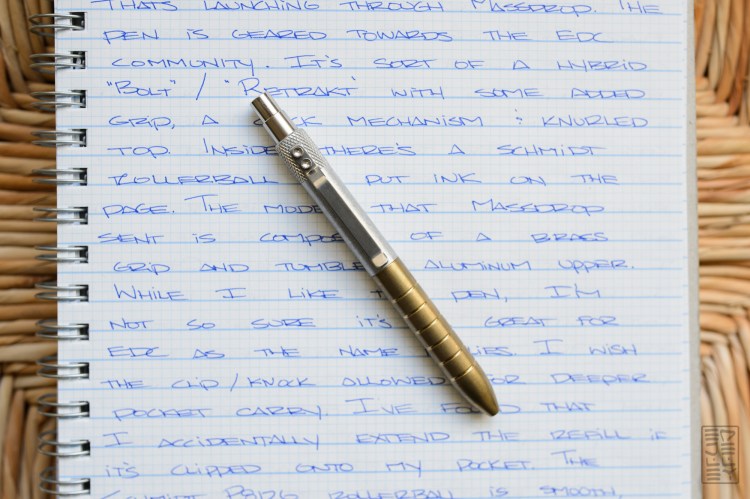 THAT'S LAUNCHING THROUGH MASSDROP. THE
PEN IS GEARED TOWARDS THE EDC
COMMUNITY. IT'S SORT OF A HYBRID
"BOLT" / "RETRAKT" WITH SOME ADDED
GRIP, A MECHANISM & KNURLED
TOP. INSIDE THERE'S A SCHMIDT
ROLLERBALL PUT INK ON THE
PAGE. THE MODEL THAT MASSDROP
SENT IS OF A BRASS
GRIP AND TUMBLED ALUMINUM UPPER.
WHILE I LIKE PEN, I'M
NOT SO SURE IT'S GREAT FOR
EDC AS THE NAME I WISH
THE CLIP/KNOCK ALLOWED FOR DEEPER
POCKET CARRY. I'VE FOUND THAT
I ACCIDENTALLY EXTEND THE REFILL IF
IT'S CLIPPED ONTO MY POCKET. THE
SCHMIDT ROLLERBALL IS SMOOTH